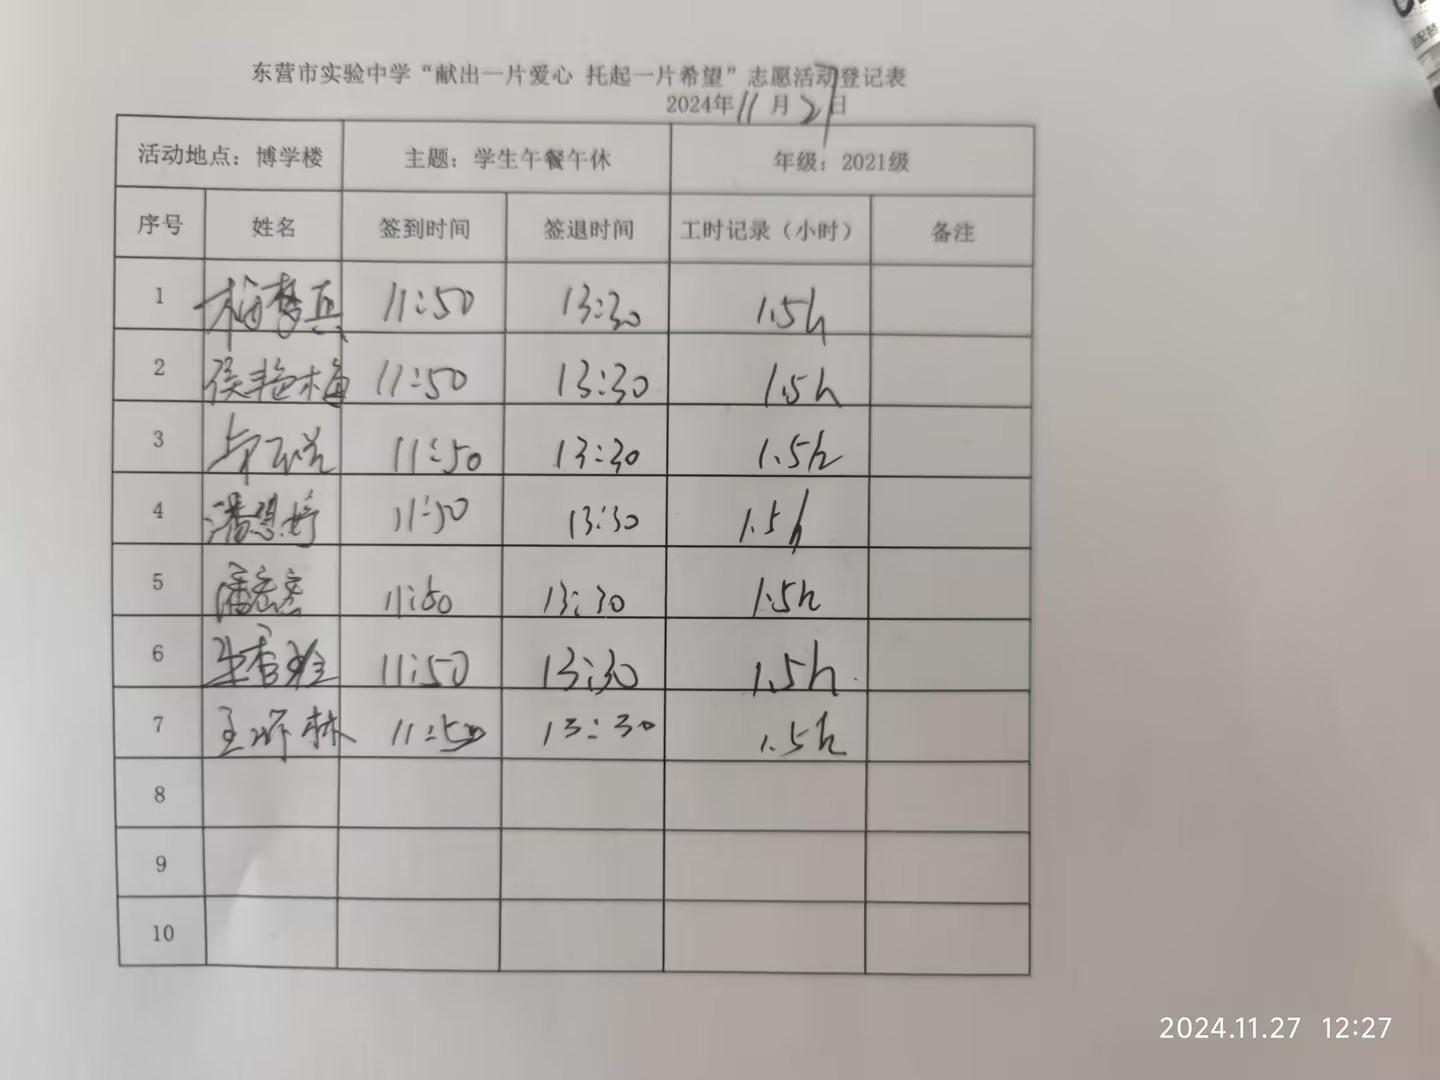 东营市实验中学“献出一片爱心 托起一片希望”志愿活动登记表
2024年11月27日
活动地点：博学楼 主题：学生午餐午休 年级：2021级
序号 姓名 签到时间 签退时间 工时记录（小时） 备注
1 11:50 13:30 1.5h
2 侯艳梅 11:50 13:30 1.5h
3 11:50 13:30 1.5h
4 潘 11:50 13:30 1.5h
5 潘 11:50 13:30 1.5h
6 11:50 13:30 1.5h
7 王 林 11:50 13:30 1.5h
8
9
10
2024.11.27 12:27